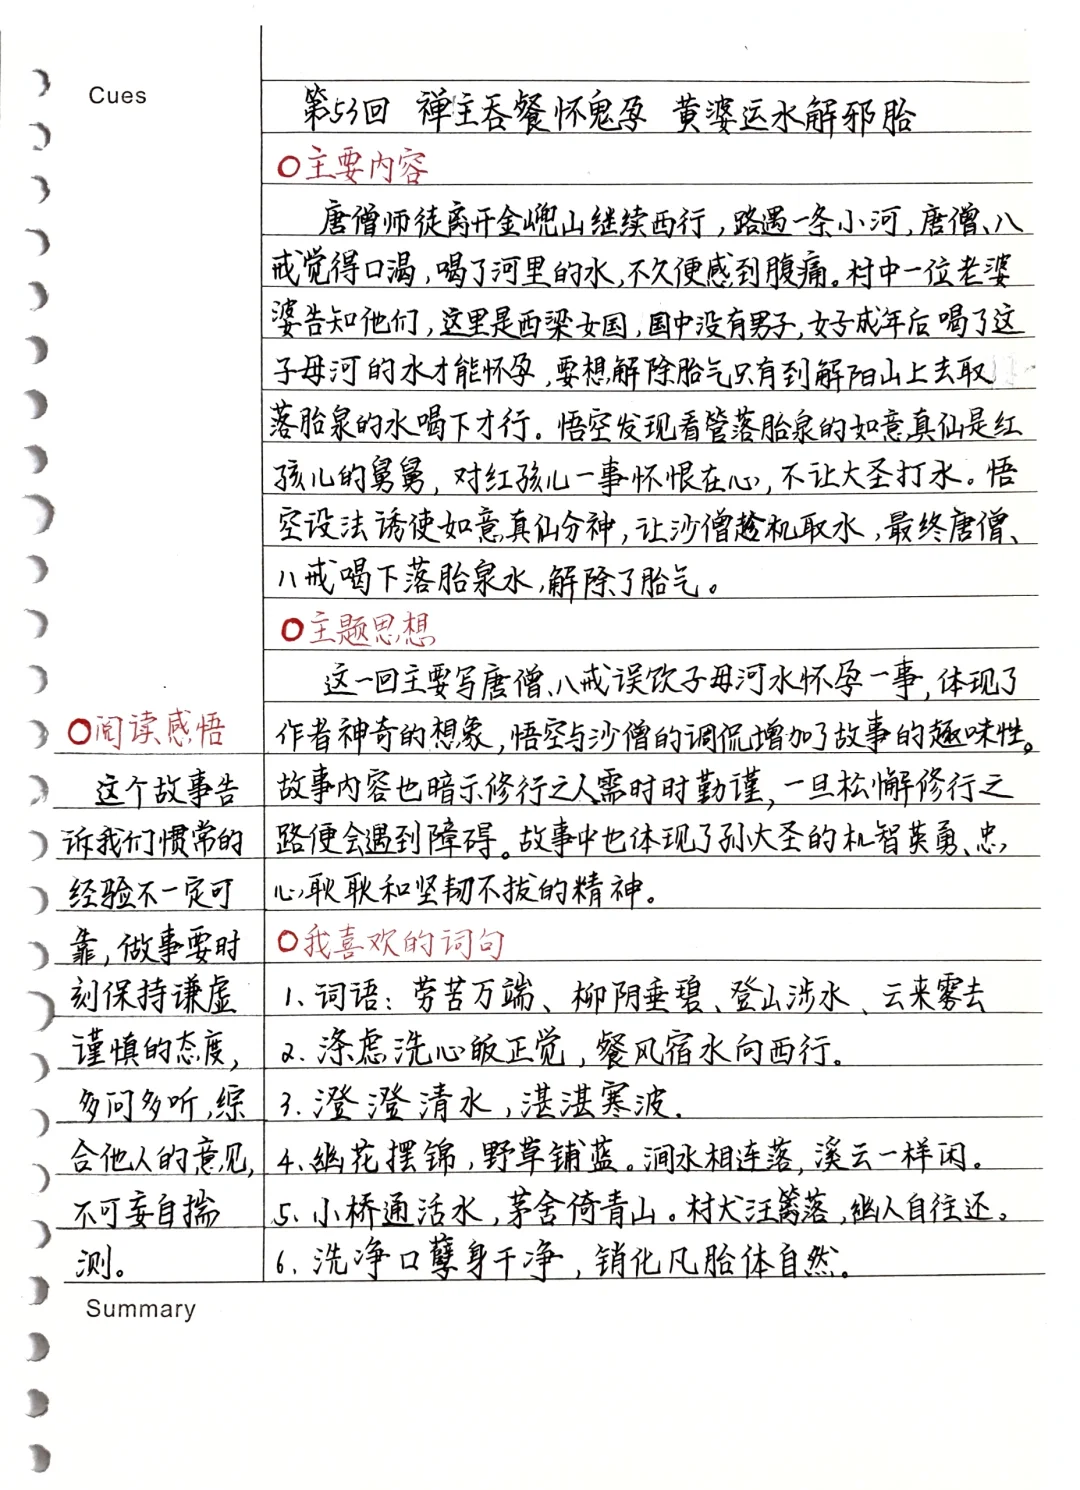 Cues
第53回 禅主吞餐怀鬼孕 黄婆运水解邪胎
主要内容
唐僧师徒离开金𠒇山继续西行,路遇一条小河,唐僧、八
戒觉得口渴,喝了河里的水,不久便感到腹痛。村中一位老婆
婆告知他们,这里是西梁女国,国中没有男子,女子成年后喝了这
子母河的水才能怀孕,要想解除胎气只有到解阳山上去取
落胎泉的水喝下才行。悟空发现看管落胎泉的如意真仙是红
孩儿的舅舅,对红孩儿一事怀恨在心,不让大圣打水。悟
空设法诱使如意真仙分神,让沙僧趁机取水,最终唐僧、
八戒喝下落胎泉水,解除了胎气。
主题思想
这一回主要写唐僧、八戒误饮子母河水怀孕一事,体现了
作者神奇的想象,悟空与沙僧的调侃增加了故事的趣味性。
故事内容也暗示修行之人需时时勤谨,一旦松懈修行之
路便会遇到障碍。故事中也体现了孙大圣的机智英勇、忠
心耿耿和坚韧不拔的精神。
我喜欢的词句
1、词语:劳苦万端、柳阴垂碧、登山涉水、云来雾去
2.涤虑洗心皈正觉,餐风宿水向西行。
3.澄澄清水,湛湛寒波.
4、幽花摆锦,野草铺蓝。涧水相连落,溪云一样闲。
5、小桥通活水,茅舍倚青山。村犬汪篱落,幽人自往还。
6、洗净口孽身干净,销化凡胎体自然。
阅读感悟
这个故事告
诉我们惯常的
经验不一定可
靠,做事要时
刻保持谦虚
谨慎的态度,
多问多听,综
合他人的意见,
不可妄自揣
测。
Summary